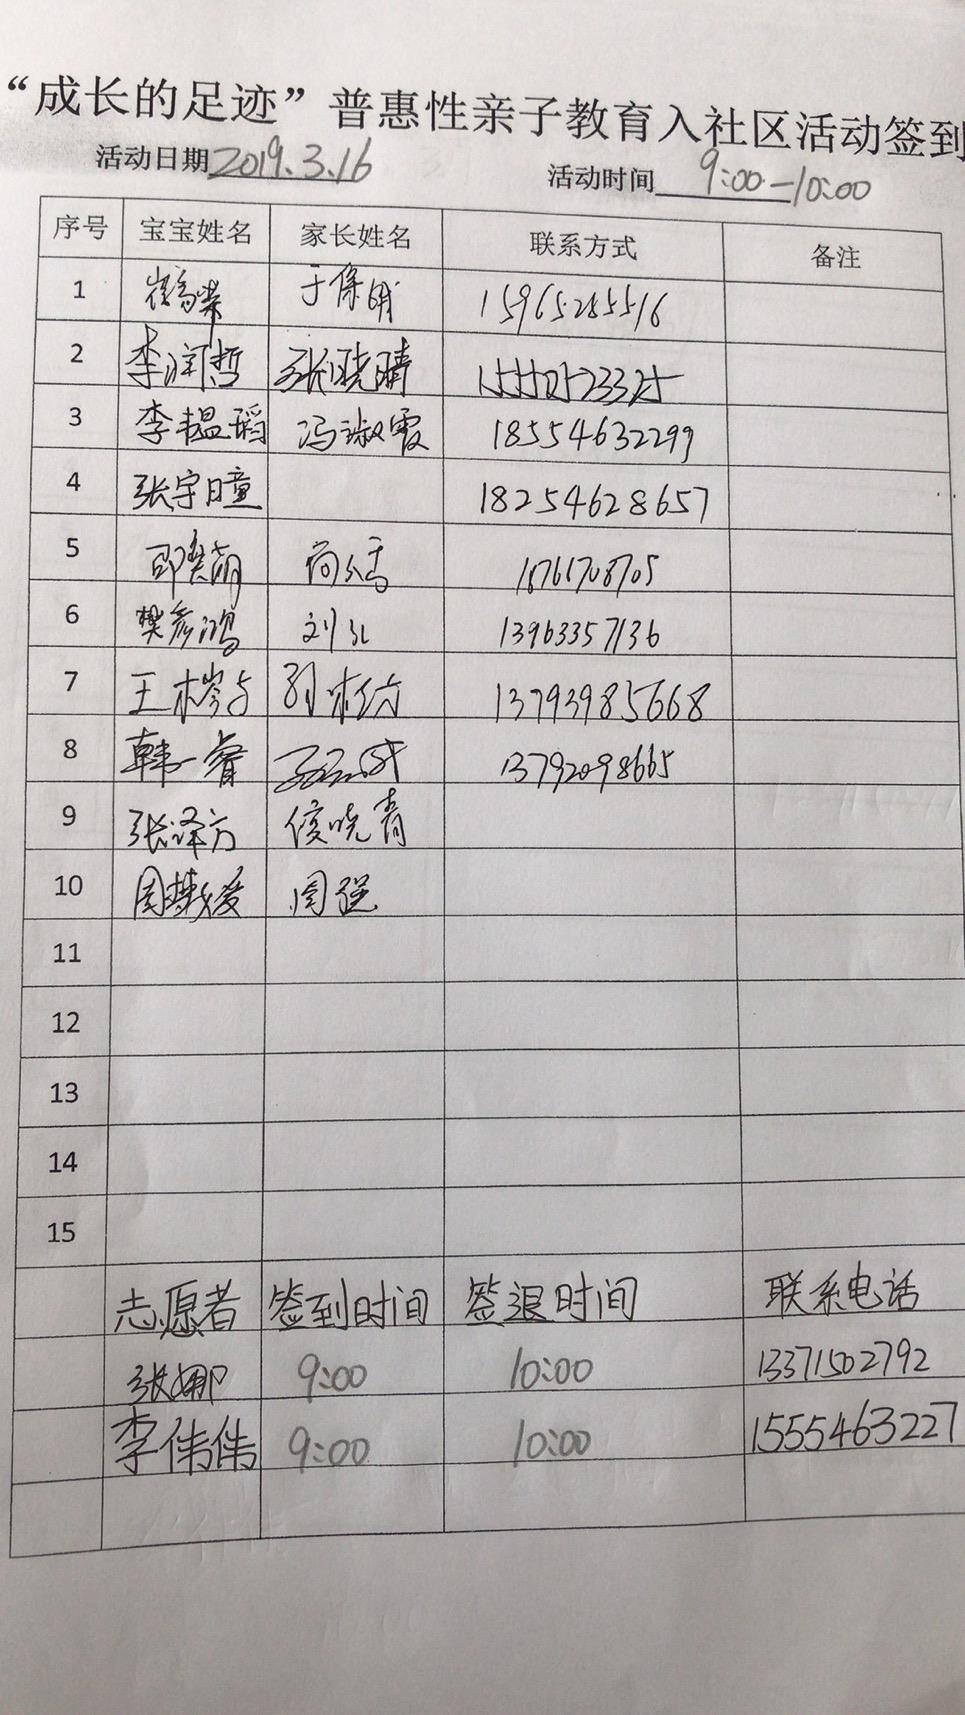 “成长的足迹”普惠性亲子教育入社区活动签到
活动日期 2019.3.16 活动时间 9:00-10:00
序号 宝宝姓名 家长姓名 联系方式 备注
1 15965285516
2 李润哲 张晓晴
3 李韫韬 冯淑霞 18554632299
4 张宇曈 18254628657
5 18761708705
6 樊彦鸿 刘 13963357136
7 王梣 13793985668
8 韩一睿 13792098665
9 张泽方 侯晓青
10 周 周强
11
12
13
14
15
志愿者 签到时间 签退时间 联系电话
张娜 9:00 10:00 13371502792
李伟伟 9:00 10:00 1555463227